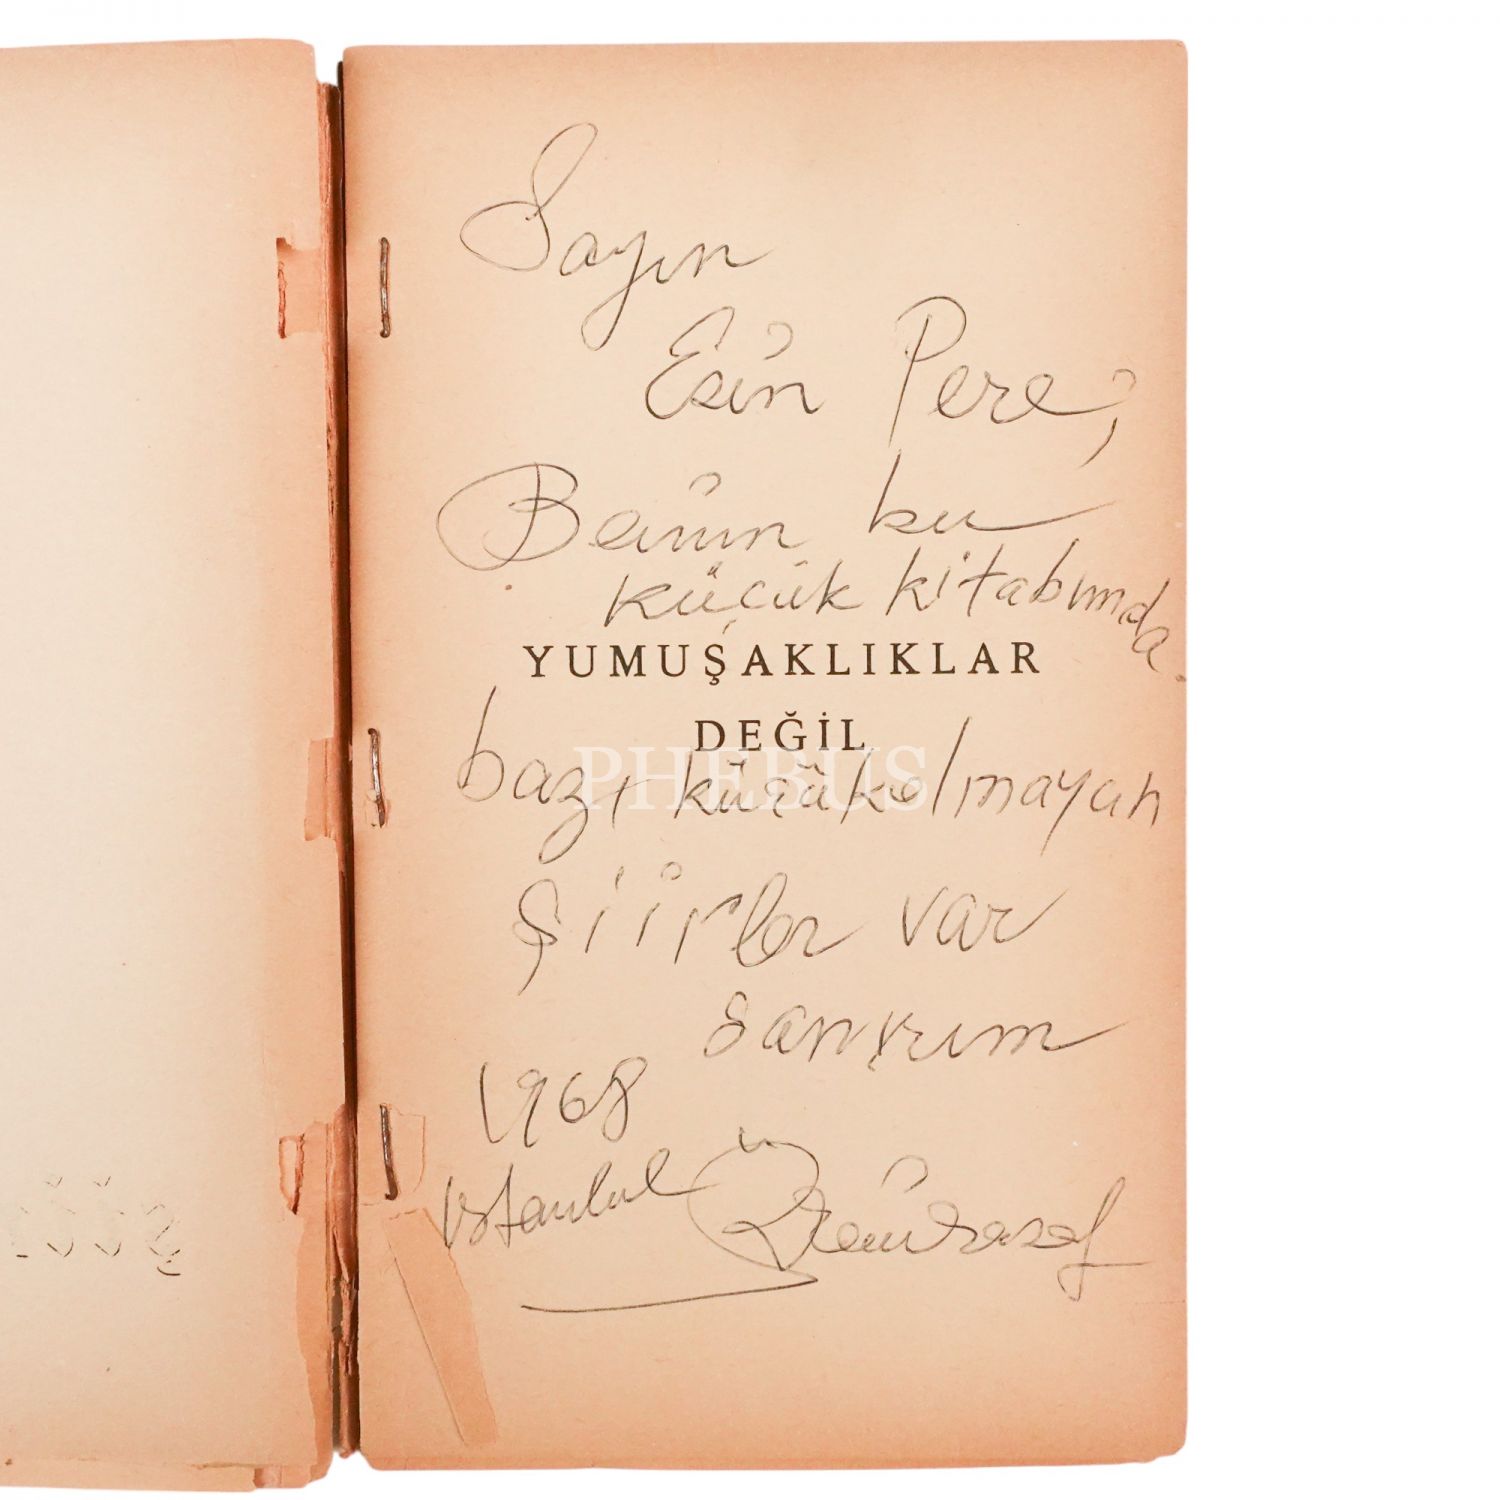 Sayın
Esin Pere,
Benim bu
küçük kitabımda
YUMUŞAKLIKLAR
DEĞİL
PHEBUS
bazı küçük olmayan
şiirler var
sanırım
1968
İstanbul
Özdemir Asaf